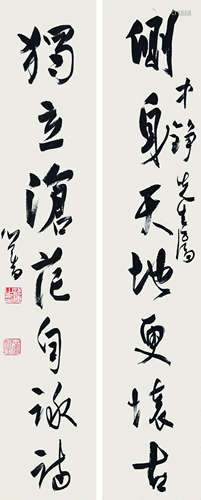 才錚先生屬
側身天地更懷古
獨立滄茫自詠詩
心畬